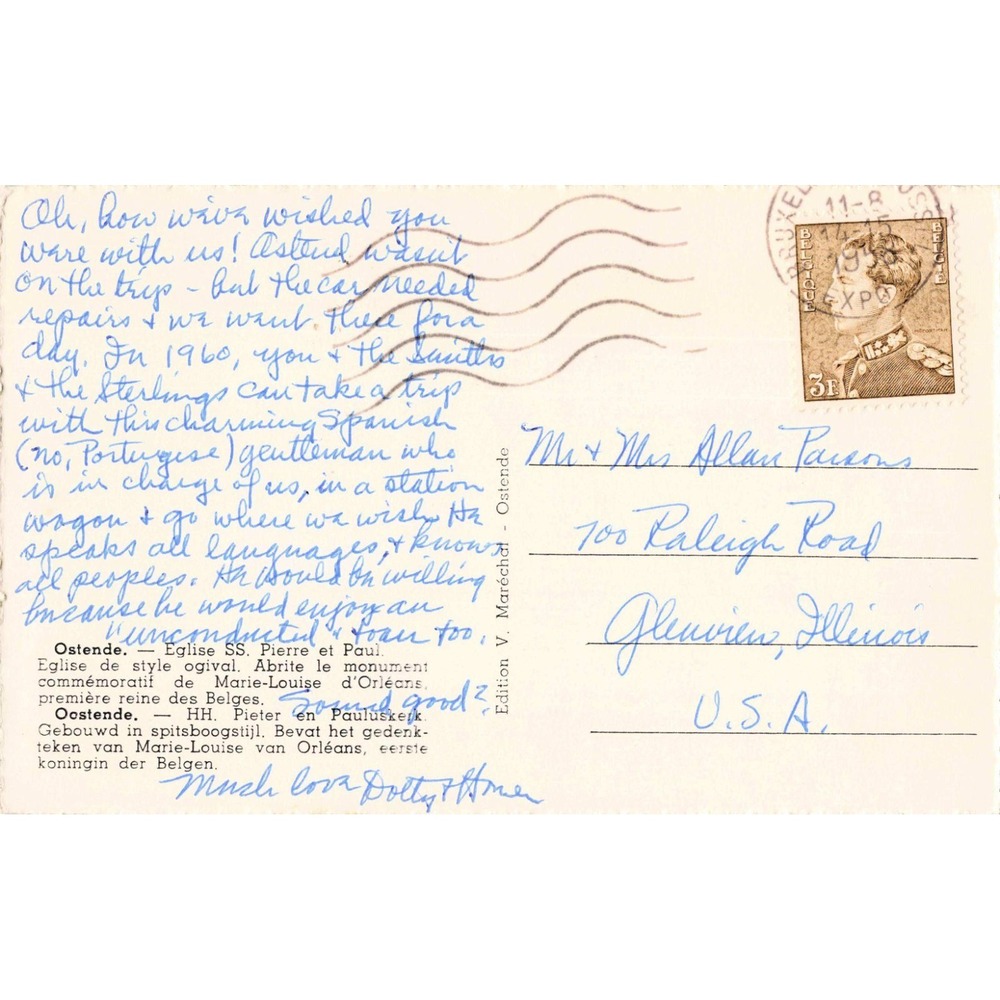 Oh, how we've wished you
were with us! Ostend wasn't
on the trip - but the car needed
repairs & we went there for a
day. In 1960, you & the Smiths
& the Sterlings can take a trip
with this charming Spanish
(no, Portugese) gentleman who
is in charge of us, in a station
wagon & go where we wish. He
speaks all languages, & knows
all peoples. He would be willing
because he would enjoy an
"unconducted" tour too.
Sound good?
Much love Dotty & Homer
Ostende. — Eglise SS. Pierre et Paul.
Eglise de style ogival. Abrite le monument
commémoratif de Marie-Louise d'Orléans,
première reine des Belges.
Oostende. — HH. Pieter en Pauluskerk.
Gebouwd in spitsboogstijl. Bevat het gedenk-
teken van Marie-Louise van Orléans, eerste
koningin der Belgen.
Edition V. Maréchal - Ostende
11-8
14-15
1958
EXPO
BELGIQUE
BELGIE
3F
Mr & Mrs Allan Parsons
700 Raleigh Road
Glenview, Illinois
U.S.A.